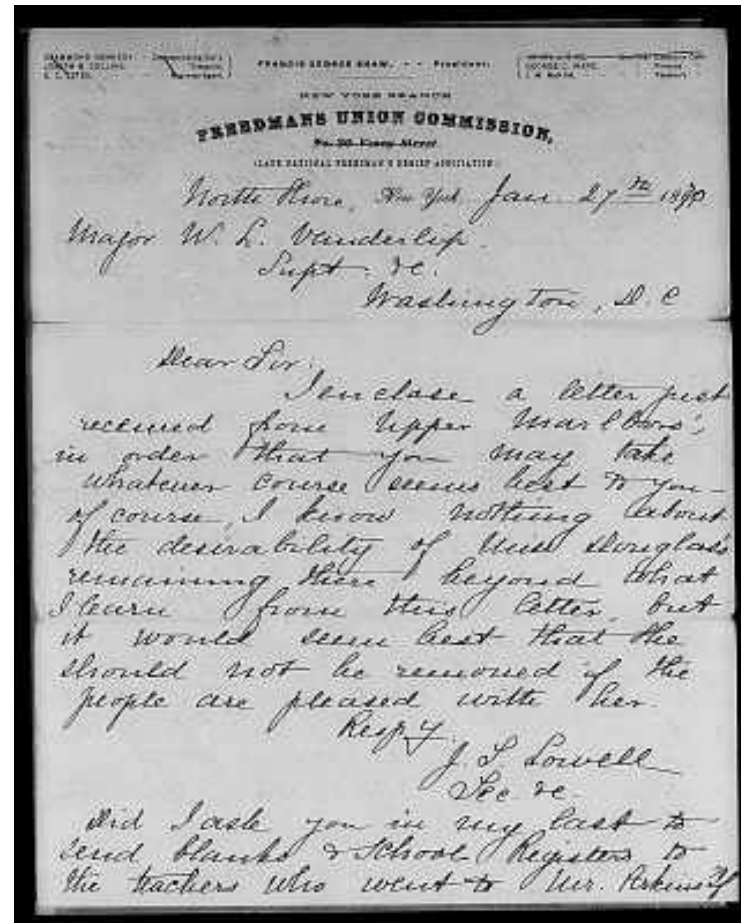 FRANCIS GEORGE SHAW, - - President.
GEORGE C. WARD,
NEW YORK BRANCH
FREEDMANS UNION COMMISSION,
No. 30 Vesey Street
(LATE NATIONAL FREEDMAN'S RELIEF ASSOCIATION)
North Shore, New York Jan 27th 1870
Major W. L. Vanderlip.
Supt. &c.
Washington, D. C
Dear Sir:
I enclose a letter just
received from Upper Marlboro',
in order that you may take
whatever course seems best to you
of course, I know nothing about
the desirability of Miss Douglass
remaining there beyond what
I learn from this letter, but
it would seem best that she
should not be removed if the
people are pleased with her.
Respy.
J. S. Lowell
Sec. &c.
Did I ask you in my last to
send blanks & School Registers to
the teachers who went to Mr.